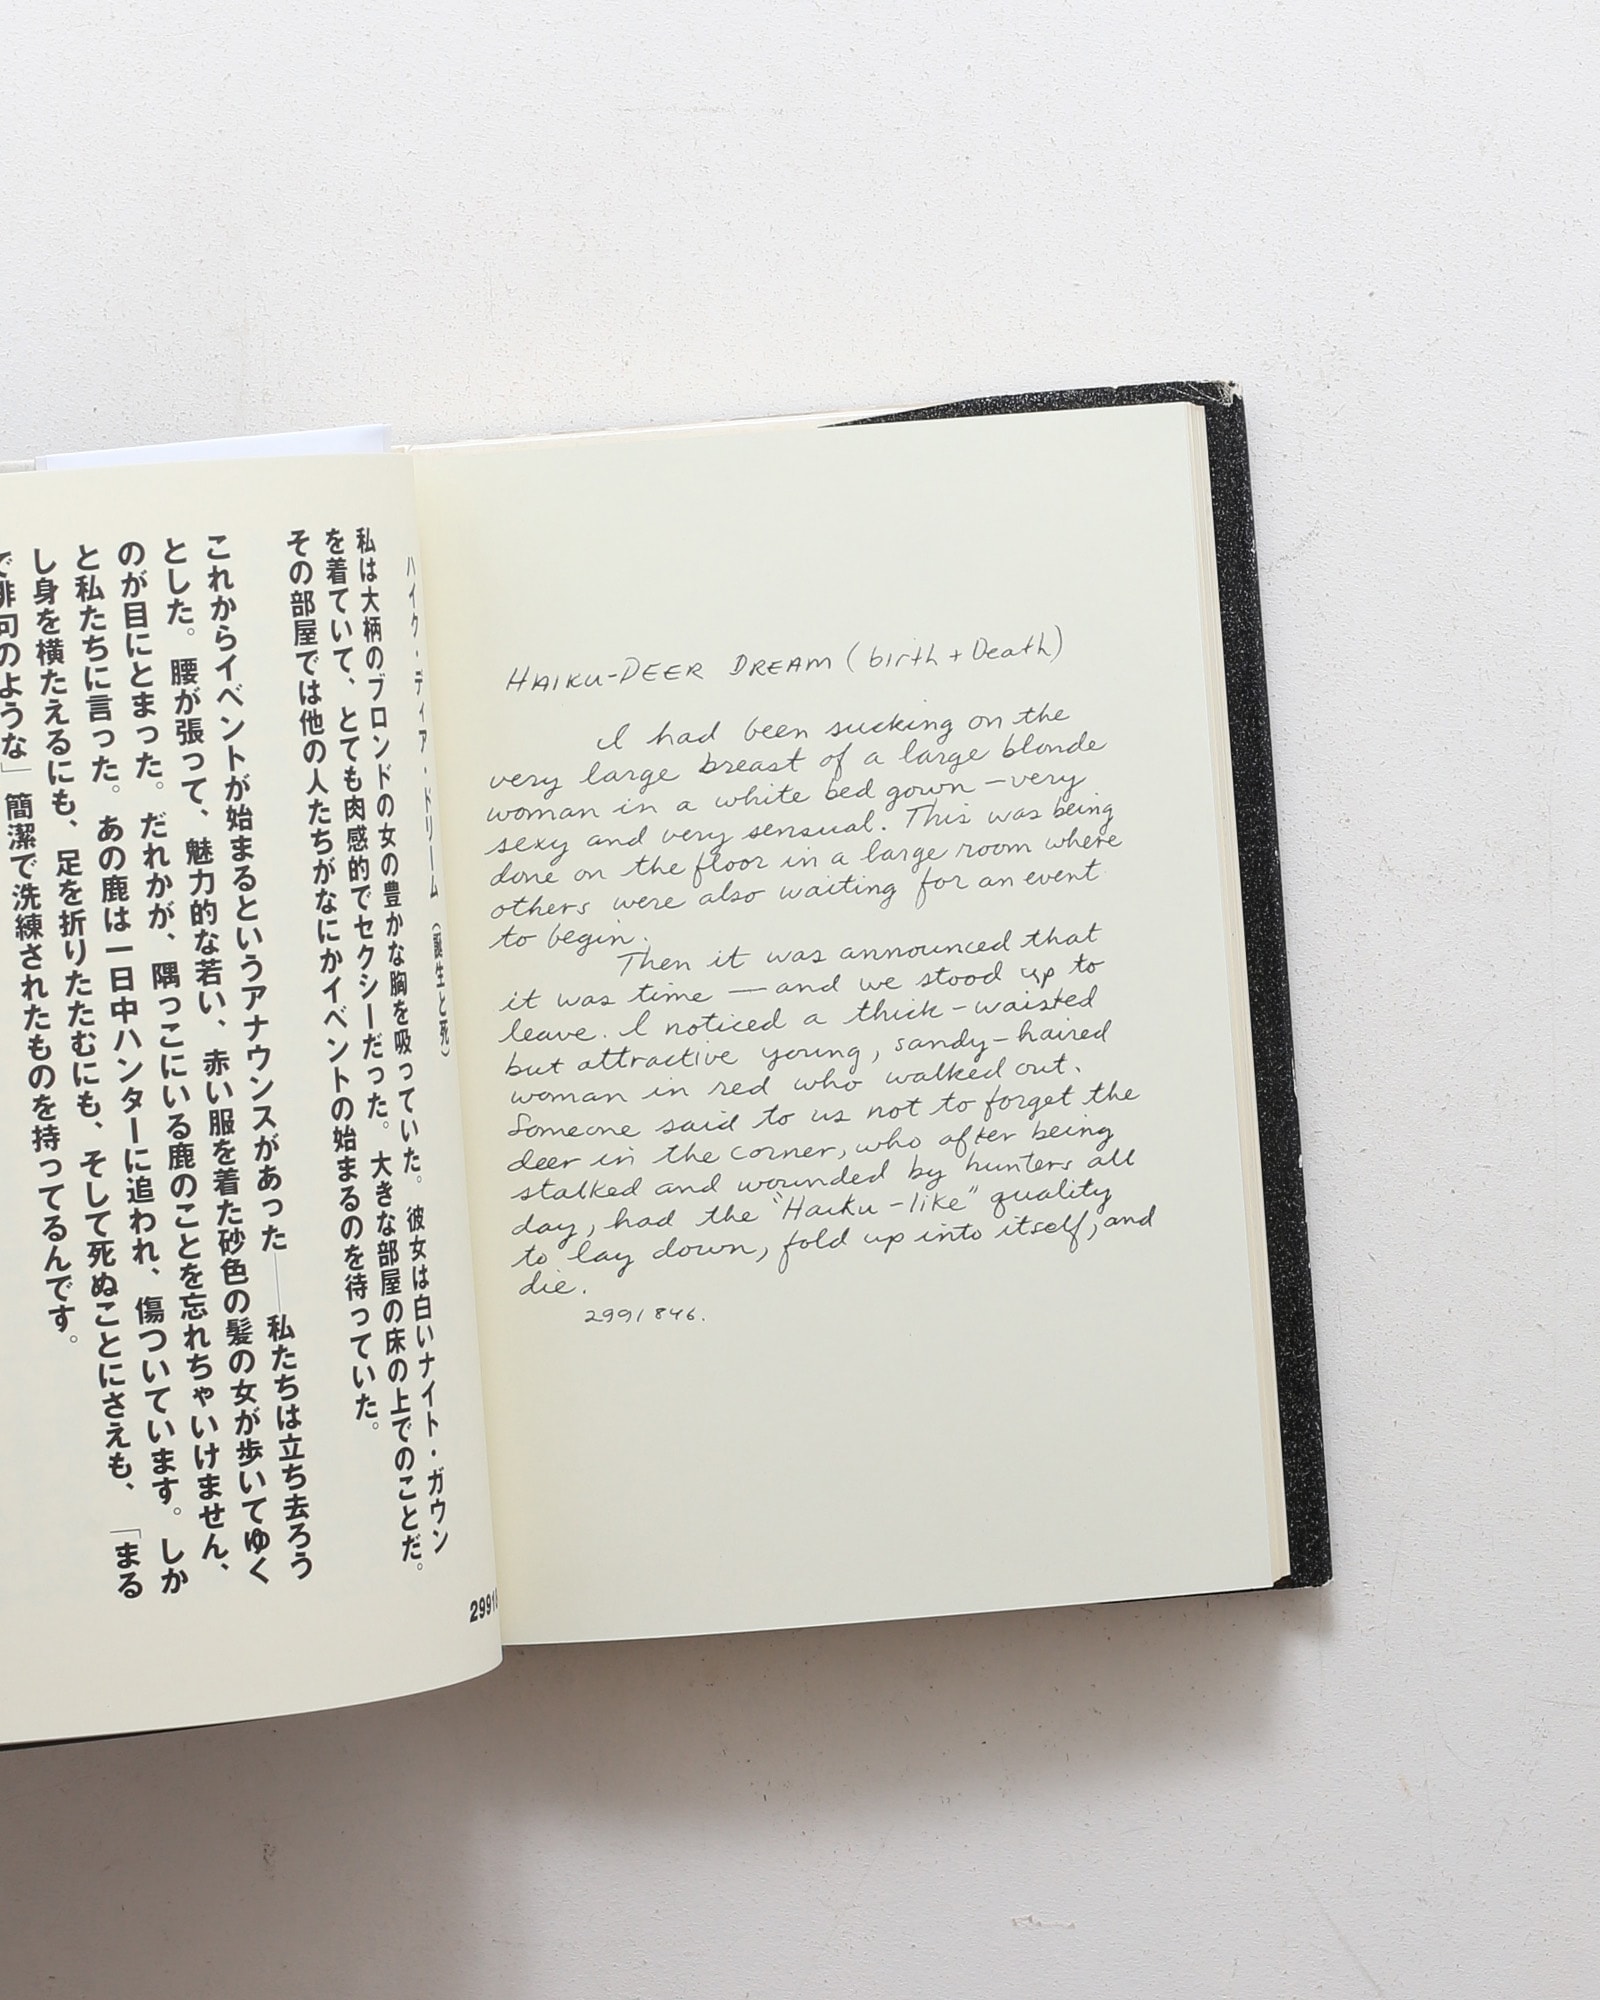 ハイク・ディア・ドリーム (誕生と死)
私は大柄のブロンドの女の豊かな胸を吸っていた。彼女は白いナイト・ガウン
を着ていて、とても肉感的でセクシーだった。大きな部屋の床の上でのことだ。
その部屋では他の人たちがなにかイベントの始まるのを待っていた。
これからイベントが始まるというアナウンスがあった——私たちは立ち去ろう
とした。腰が張って、魅力的な若い、赤い服を着た砂色の髪の女が歩いてゆく
のが目にとまった。だれかが、隅っこにいる鹿のことを忘れちゃいけません、
と私たちに言った。あの鹿は一日中ハンターに追われ、傷ついています。しか
し身を横たえるにも、足を折りたたむにも、そして死ぬことにさえも、「まる
で俳句のような」簡潔で洗練されたものを持ってるんです。
2991
HAIKU-DEER DREAM (birth + Death)
I had been sucking on the
very large breast of a large blonde
woman in a white bed gown — very
sexy and very sensual. This was being
done on the floor in a large room where
others were also waiting for an event
to begin.
Then it was announced that
it was time — and we stood up to
leave. I noticed a thick-waisted
but attractive young, sandy-haired
woman in red who walked out.
Someone said to us not to forget the
deer in the corner, who after being
stalked and wounded by hunters all
day, had the "Haiku-like" quality
to lay down, fold up into itself, and
die.
2991846.